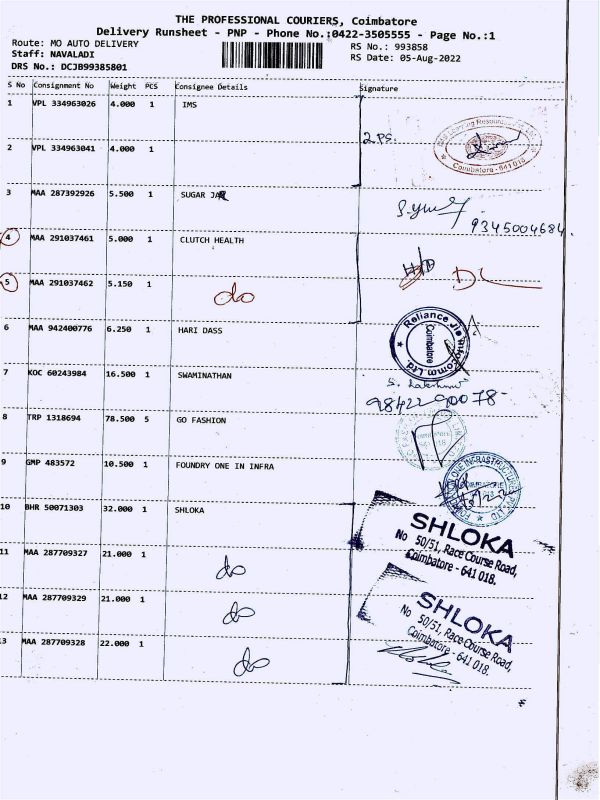 THE PROFESSIONAL COURIERS, Coimbatore
Delivery Runsheet - PNP - Phone No.:0422-3505555 - Page No.:1
Route: MO AUTO DELIVERY
RS No.: 993858
Staff: NAVALADI
RS Date: 05-Aug-2022
DRS No.: DCJB99385801
S No Consignment No Weight PCS Consignee Details Signature
1 VPL 334963026 4.000 1 IMS
2 ps.
Coimbatore - 641 018
2 VPL 334963041 4.000 1
3 MAA 287392926 5.500 1 SUGAR JAR
9345004684
4 MAA 291037461 5.000 1 CLUTCH HEALTH
5 MAA 291037462 5.150 1 do
6 MAA 942400776 6.250 1 HARI DASS
Reliance Jio Infocomm Ltd.
Coimbatore
7 KOC 60243984 16.500 1 SWAMINATHAN
S. Lakshmi
9842290078
8 TRP 1318694 78.500 5 GO FASHION
9 GMP 483572 10.500 1 FOUNDRY ONE IN INFRA
10 BHR 50071303 32.000 1 SHLOKA
SHLOKA
No 50/51, Race Course Road,
Coimbatore - 641 018.
11 MAA 287709327 21.000 1 do
12 MAA 287709329 21.000 1 do
SHLOKA
No 50/51, Race Course Road,
Coimbatore - 641 018.
13 MAA 287709328 22.000 1 do